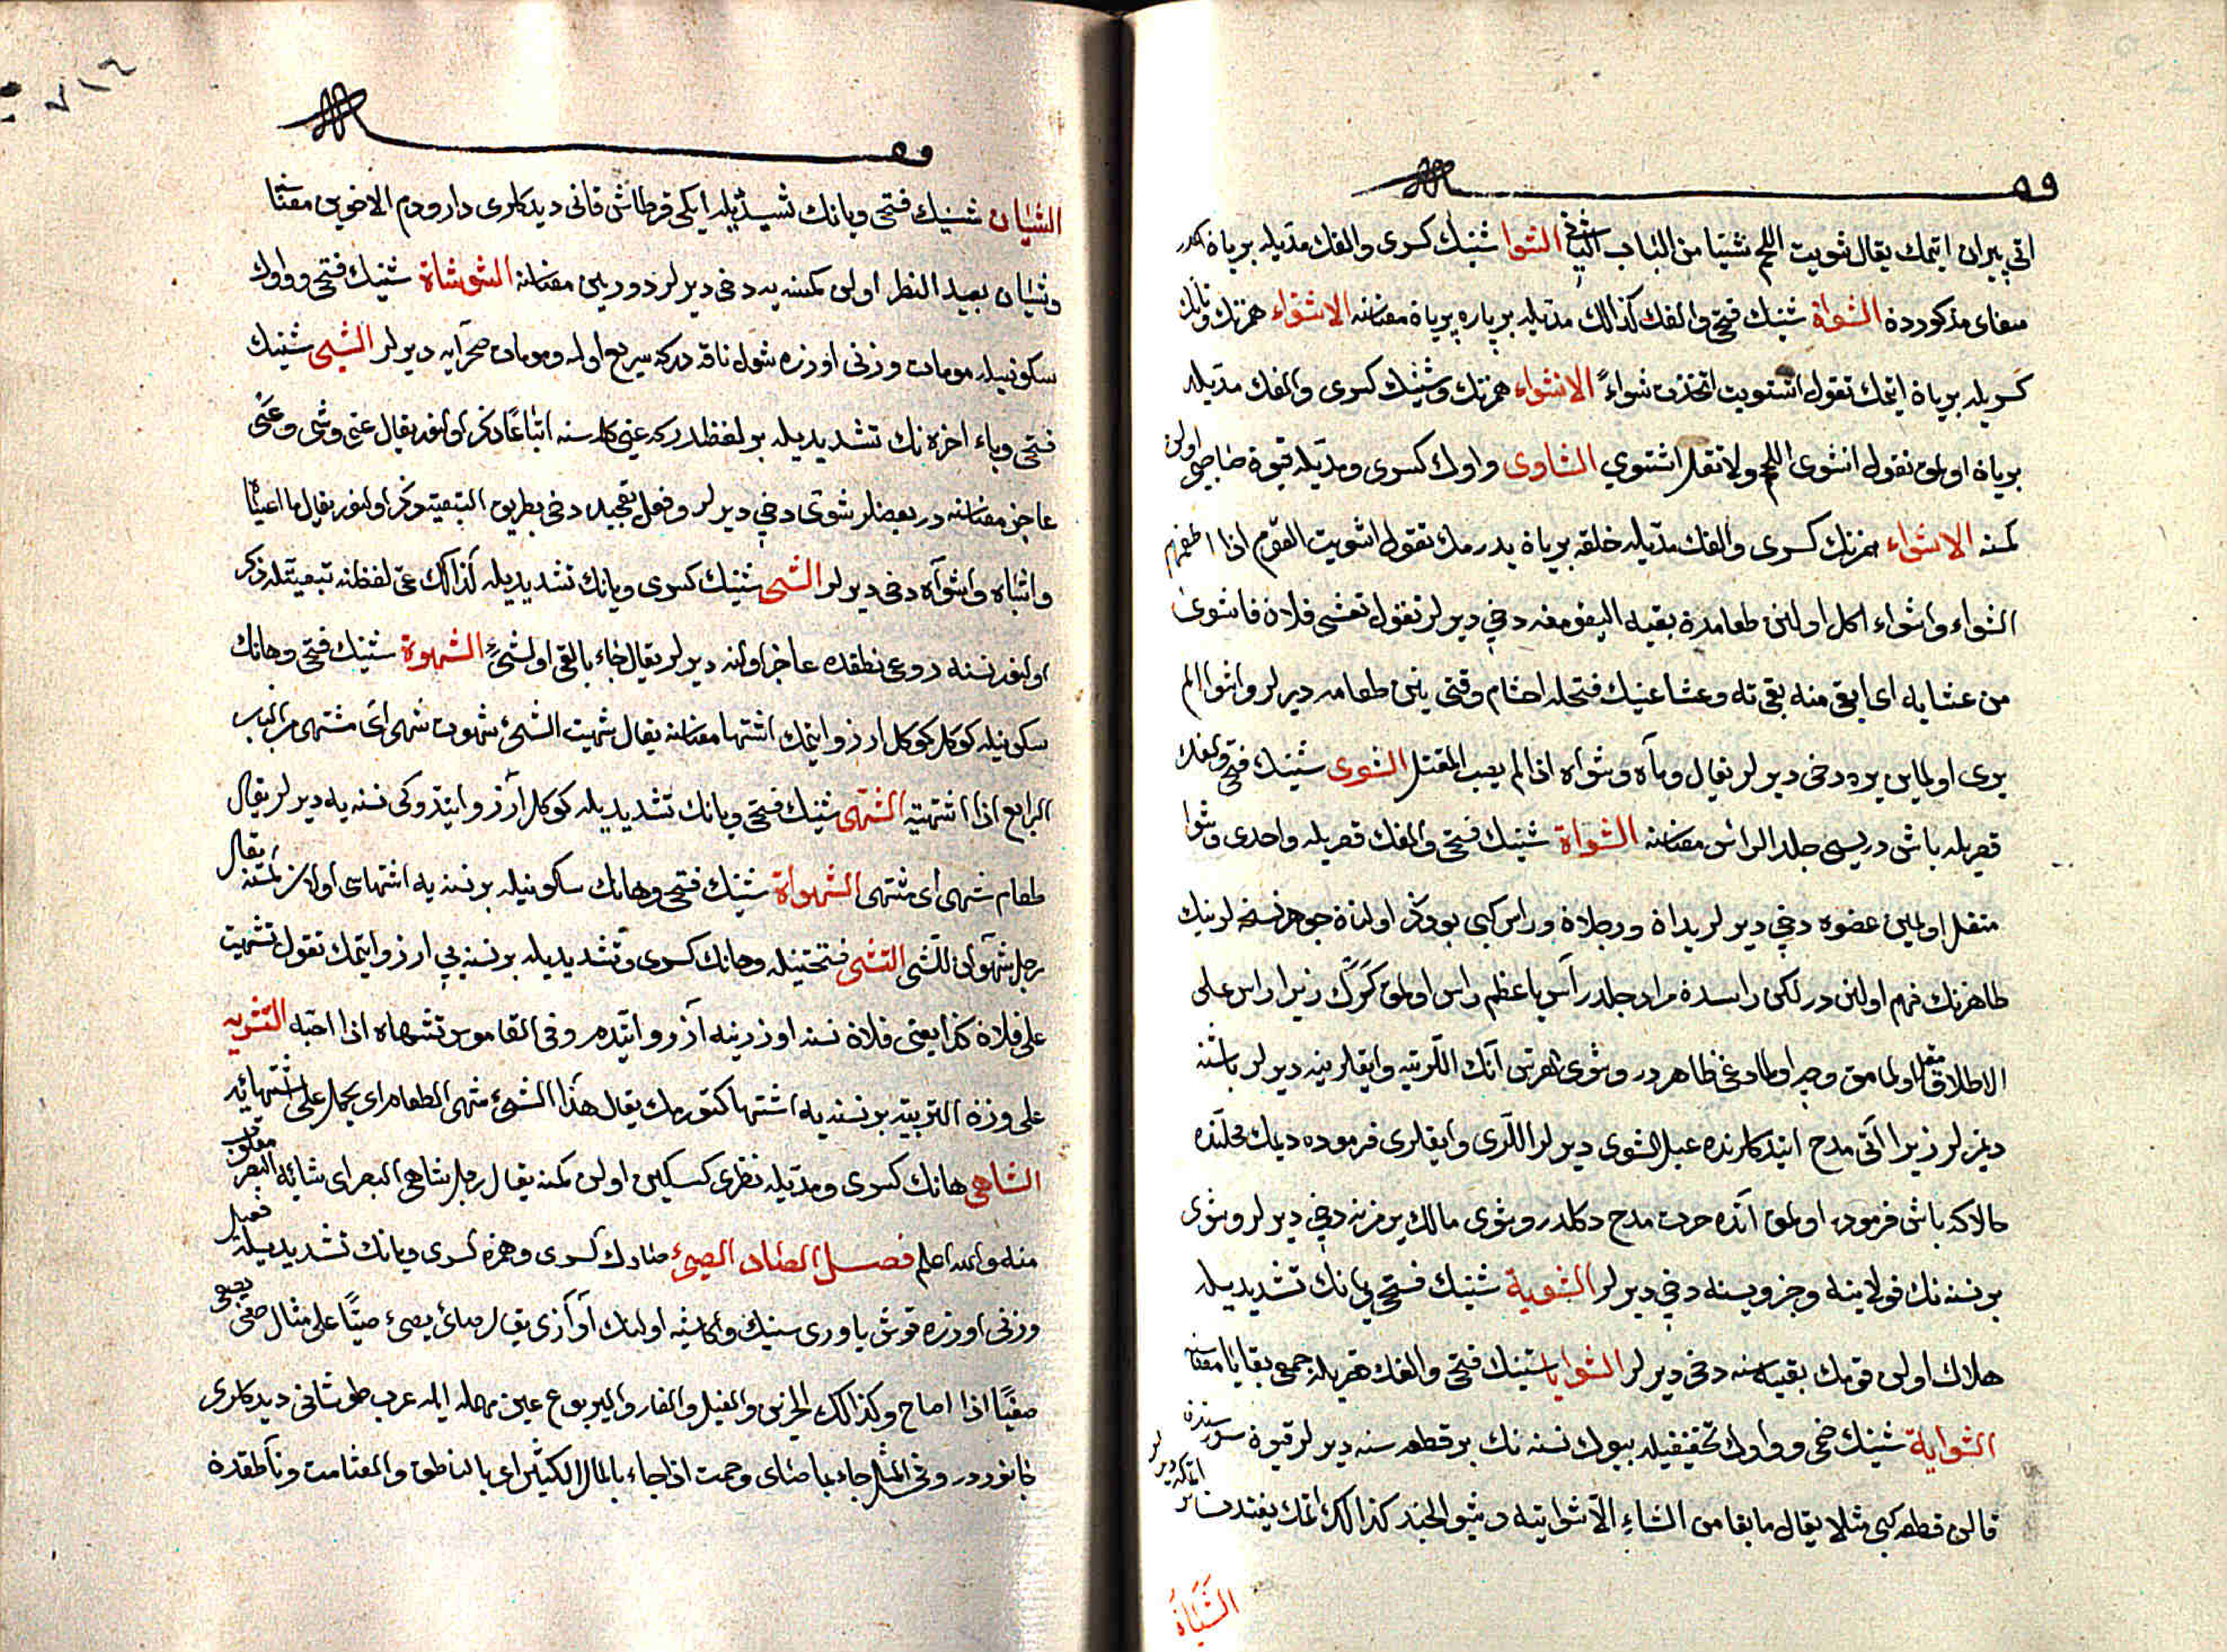 اتی بریان ایتمك يقال شويت اللحم شيّا من الباب الثانی الشوا شينك كسری والفك مدّيله بریان
معنای مذكورده الشواة شينك فتحی والفك كذالك مدّيله بر پاره بریان معناسنه الاشتواء همزنك وتانك
كسريله بریان ایتمك تقول اشتويت اتخذت شواءً الانشواء همزنك وشينك كسری والفك مدّيله
بریان اولمق تقول انشوی اللحم ولا تقل اشتوي الشاوی واوك كسری ومدّيله قيون صاحبی اولن
كمسنه الاشواء همزنك كسری والفك مدّيله خلقه بریان يدرمك تقول اشويت القوم اذا اطعمتهم
الشواء واشواء اكل اولنن طعامدن بقيه اليقومغه دخی ديرلر تقول تعشی فلان فاشوی
من عشايه ای ابقی منه بقيّه وعشا عينك فتحيله اخشام وقتی ينن طعامه ديرلر واشوا
يری اولماين يره دخی ديرلر يقال رماه وشواه اذا لم يصب المقتل الشوی شينك فتحی والفك
قصريله باش دريسی جلد الرأس معناسنه الشواة شينك فتحی والفك قصريله واحدی وشوا
مقتل اولمين عضوه دخی ديرلر يدان ورجلان ورأس كبی بو ذكر اولنان جوهر نسخه لرينك
ظاهرندن فهم اولنن در لكن رأسدن مراد جلد رأس يا عظم رأس اولمق كرك زيرا رأس علی
الاطلاق مقتل اولمامق وجه اولمادوغی ظاهردر وشوی الفرس آتك اللرينه وايقلرينه ديرلر باشنه
ديمزلر زيرا آتی مدح ايتدكلرنده عبل الشوی ديرلر اللری وايقلری فرموده ديمك محلنده
حالاكه باش فرموده اولمق آتده حرت مدح دكلدر وشوی مالك يرمزنه دخی ديرلر وشوی
بر نسنه نك قولاينه وجزويسنه دخی ديرلر الشوية شينك فتحی يانك تشديديله
هلاك اولن قومك بقيه سنه دخی ديرلر الشوايا شينك فتحی والفك قصريله جمعی بقايا معناسنه
الشواية شينك ضمی وواوك تخفيفيله بيوك نسنه نك بر قطعه سنه ديرلر قيون سوريسندن
قالن قطعه كبی مثلا يقال ما بقا من الشاء الّا شواية وشواية الخبز كذالك اتمك
الشّيّان
الشيان شينك فتحی ويانك تشديديله ايكی قرطاش قانی ديدكلری دارودم الاخوين معناسنه
وشيان بعيد النظر اولن كمسنه يه دخی ديرلر دوربين معناسنه الشوشاة شينك فتحی وواوك
سكونيله موماة وزنی اوزره شول ناقه در كه سريع اوله وموماة صحرايه ديرلر الشی شينك
فتحی وياء اخره نك تشديديله بر لفظدر كه عيی كلمه سنه اتباعًا ذكر اولنور يقال عيی وشی وعیی
عاجز معناسنه در بعضلر شوی دخی ديرلر وفعل تعجبده دخی بطريق التبعية ذكر اولنور يقال ما اعياه
واشياه واشواه دخی ديرلر الشی شينك كسری ويانك تشديديله كذالك عی لفظنه تبعيتله ذكر
اولنور نسنه دروعی نطقده عاجز اولنه ديرلر يقال جاء بالعی والشیّ الشهوة شينك فتحی وهانك
سكونيله كوكل كوكل ارزو ايتمك اشتها معناسنه يقال شهيت الشئ شهوة شهی ای مشتهی من الباب
الرابع اذا اشتهيته الشهی شينك فتحی ويانك تشديديله كوكل ارزو ايتدوكی نسنه يه ديرلر يقال
طعام شهی ای مشتهی الشهوان شينك فتحی وهانك سكونيله بر نسنه يه اشتهاسی اولان كمسنه يقال
رجل شهوان للشی التشهی فتحتينله وهانك كسری وتشديديله بر نسنه يی ارزو ايتمك تقول تشهيت
علی فلان كذا يعنی فلان نسنه اوزرينه آرزو ايتدم وفی القاموس تشهاه اذا احبّه التشهية
علی وزن التربية بر نسنه يه اشتها كتورمك يقال هذا الشئ شهی الطعام ای يحمل علی اشتهائه
الشاهی هانك كسری ومدّيله نظری كسكين اولن كمسنه يقال رجل شاهی البصر ای شائه البصر مقلوب
منه والله اعلم فصل الصاد الصیئ صادك كسری وهمزه كسری ويانك تشديديله فعيل
وزنی اوزره قوش ياوريسينك وامثالنه اولنك آوازی يقال صائ يصئ صيّا علی مثال صغی يصغی
صغيًّا اذا صاح وكذالك الخنزير والفيل والفار واليربوع عين مهمله ايله عرب طوشانی ديدكلری
جانوردر وفی المثل جاء بما صای وصمت اذا جاء بالمال الكثير ای بالناطق والصامت وناطقدن